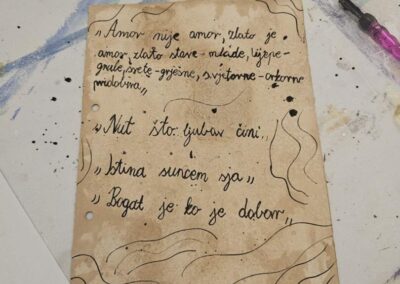 „Amor nije amor, zlato je
amor, zlato stare - mlade, lijepe -
grube, svete - grješne, svjetovne - crkovne
pridobiva„
„Nut što ljubav čini„
„Istina suncem sja„
„Bogat je ko je dobar„